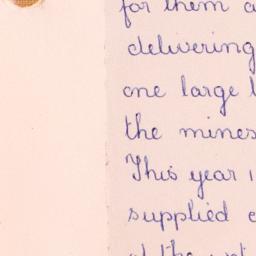 for them
delivering
one large
the mines
This year
supplied
of the